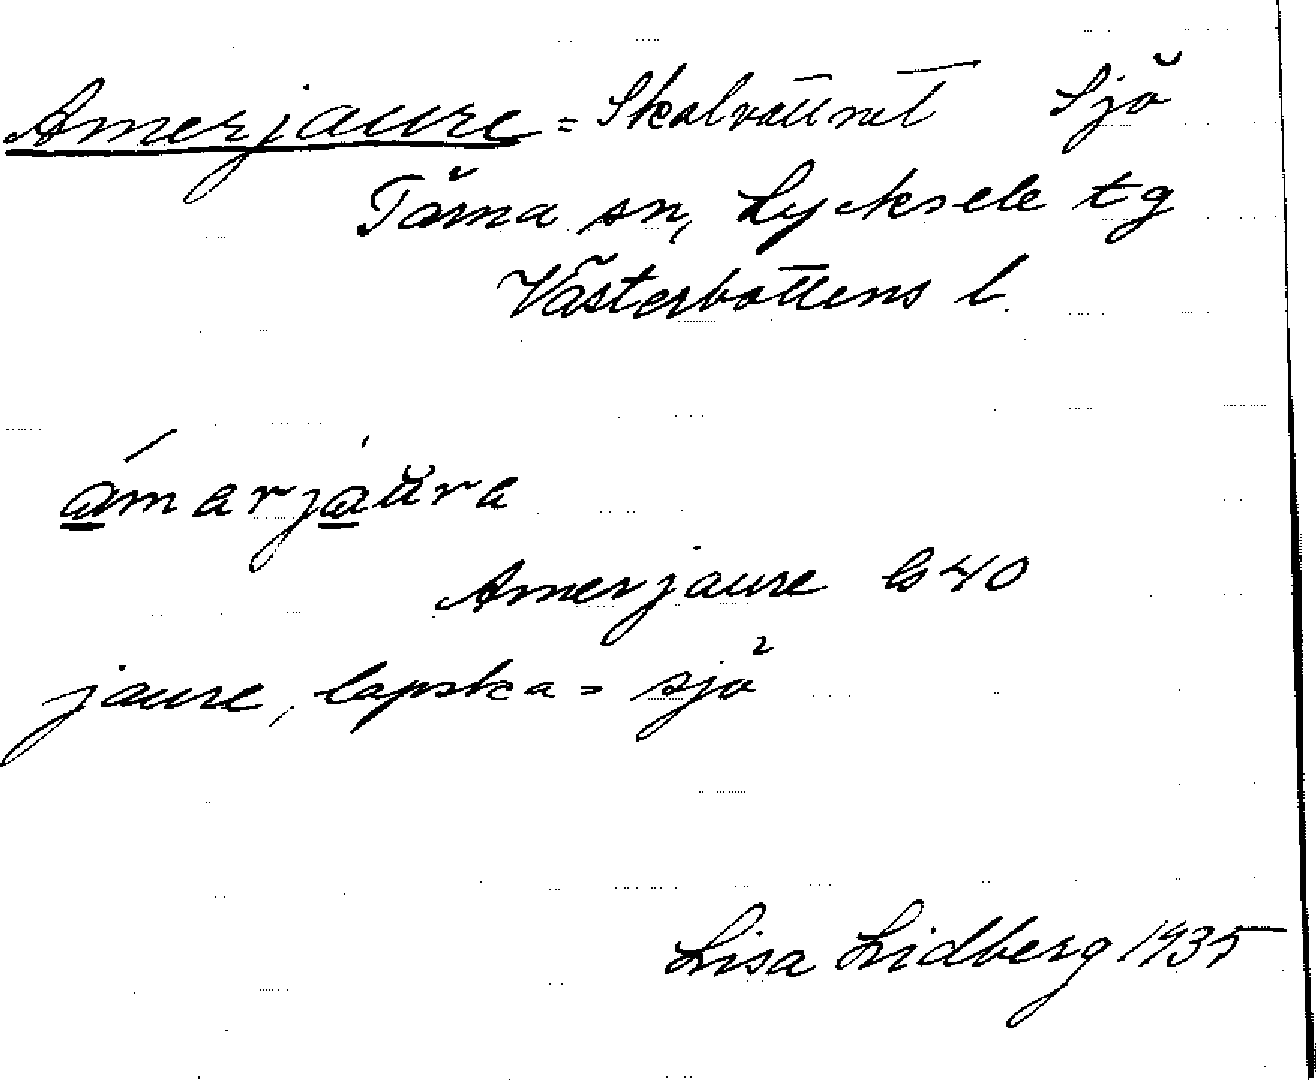 Amerjaure = Skalvattnet Sjö
Tärna sn, Lycksele tg
Västerbottens l.
ámarjaŭra
Amerjaure G40
jaure, lapska = sjö
Lisa Lidberg 1935